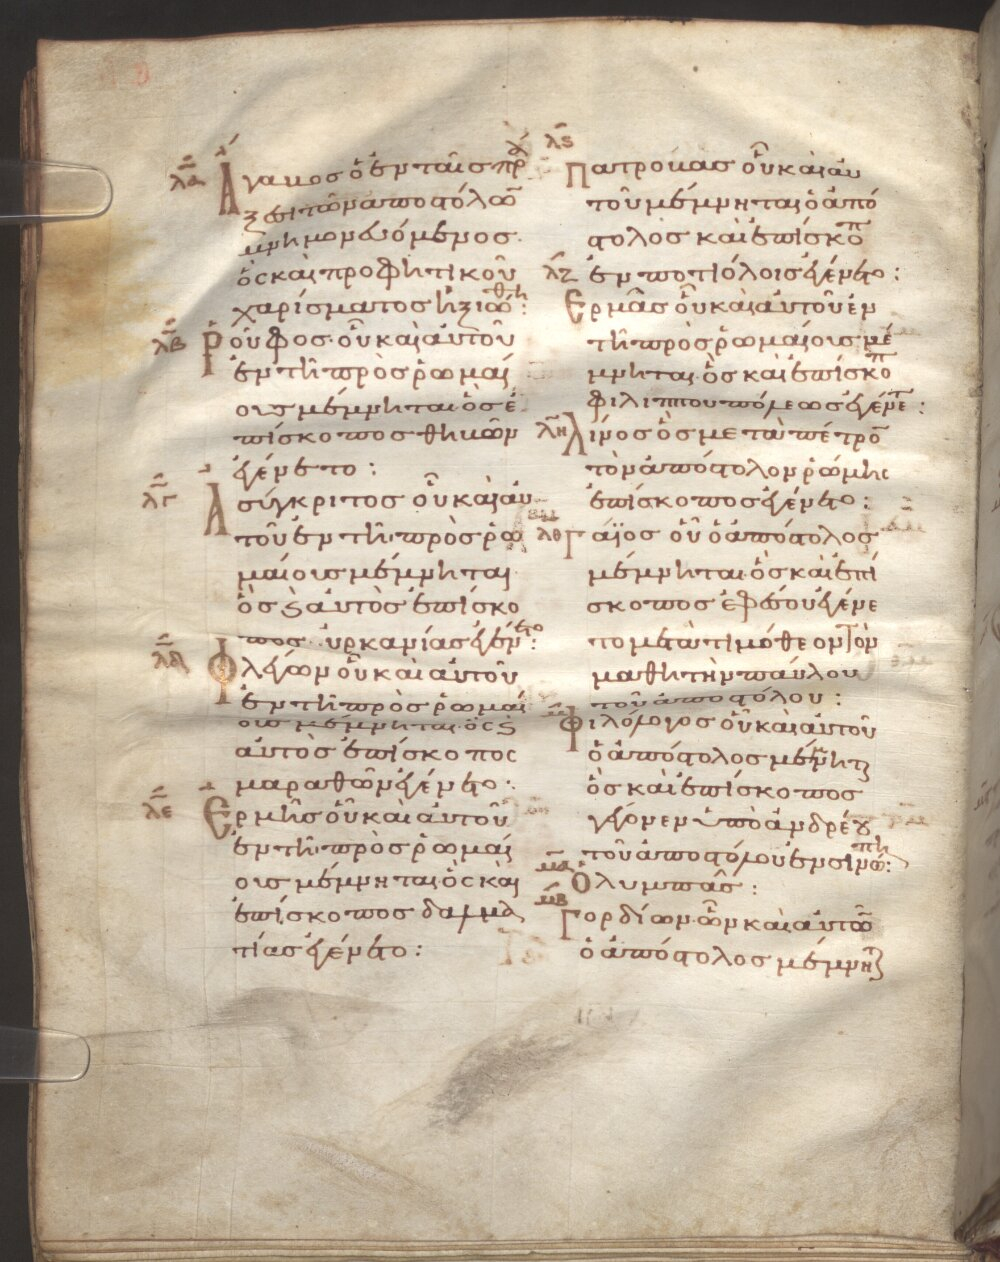 λα Ἄγαμος ὁ ἐν ταῖς πρα
ξεσι τῶν ἀποστόλων
μνημονευόμενος·
ὃς καὶ προφητικοῦ
χαρίσματος ἠξιώθη:
λβ Ῥοῦφος· οὗ καὶ αὐτοῦ
ἐν τῆ πρὸς ῥωμαί
οις μέμνηται· ὃς ἐ
πίσκοπος θηκῶν
ἐγένετο:
λγ Ἀσύγκριτος οὗ καὶ αυ
τοῦ ἐν τῆ πρὸς ῥω
μαίοις μέμνηται·
ὃς ϗ αὐτὸς ἐπίσκο
πος ὑρκανίας ἐγένετο
λδ Φλέγων οὗ καὶ αὐτοῦ
ἐν τῆ πρὸς ῥωμαί
οις μέμνηται· ὃς ϗ
αὐτὸς ἐπίσκοπος
μαραθῶν ἐγένετο:
λε Ἑρμῆς οὗ καὶ αὐτοῦ
ἐν τῆ πρὸς ῥωμαί
οις μέμνηται· ὃς καὶ
ἐπίσκοπος δαλμα
τίας ἐγένετο:
λϛ
Πατρόβας οὗ καὶ αὐ
τοῦ μέμνηται ὁ ἀπό
στολος καὶ ἐπίσκοπ
λζ ἐν ποτιόλοις ἐγένετο:
Ἑρμᾶς οὗ καὶ αὐτοῦ ἐν
τῆ πρὸς ῥωμαίοις μέ
μνηται· ὃς καὶ ἐπίσκοπ
φιλιππουπόλεως ἐγένετ:
λη Λίνος ὃς μετὰ πέτρον
τὸν ἀπόστολον ῥώμης
ἐπίσκοπος ἐγένετο:
λθ Γάϊος οὗ ὁ ἀπόστολος
μέμνηται· ὃς καὶ ἐπί
σκοπος ἐφέσου ἐγένε
το μετὰ τιμόθεον τὸν
μαθητὴν παύλου
τοῦ ἀποστόλου:
μ Φιλόλογος οὗ καὶ αὐτοῦ
ὁ ἀπόστολος μέμνηται
ὃς καὶ ἐπίσκοπος
γέγονεν ὑπὸ ἀνδρέου
τοῦ ἀποστόλου ἐν σινώπη:
μα Ὀλυμπᾶς:
μβ Γορδίων· ὧν καὶ αὐτῶν
ὁ ἀπόστολος μέμνηται